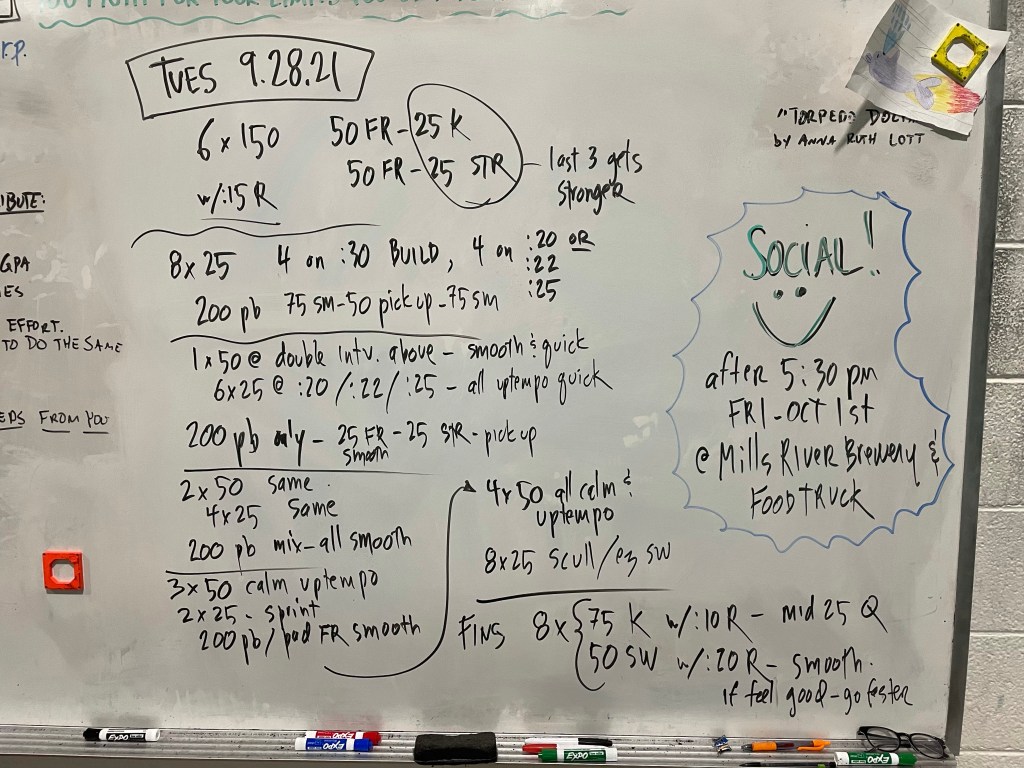 r.p.
TUES 9.28.21
6 x 150 50 FR - 25 K
50 FR - 25 STR - last 3 gets
stronger
w/:15 R
8 x 25 4 on :30 BUILD, 4 on :20 OR
:22
:25
200 pb 75 sm - 50 pick up - 75 sm
1 x 50 @ double intv. above - smooth & quick
6 x 25 @ :20 / :22 / :25 - all uptempo quick
200 pb only - 25 FR - 25 STR - pick up
smooth
2 x 50 same.
4 x 25 same
200 pb mix - all smooth
3 x 50 calm uptempo
2 x 25 - sprint
200 pb / pad FR smooth
4 x 50 all calm &
uptempo
8 x 25 scull / ez sw
FINS 8 x { 75 K w/:10 R - mid 25 Q
50 SW w/:20 R - smooth.
if feel good - go faster
"TORPEDO
BY ANNA RUTH LOTT
SOCIAL!!
after 5:30 pm
FRI - OCT 1st
@ Mills River Brewery &
FOOD TRUCK
IBUTE:
GPA
ES
EFFORT.
TO DO THE SAME
EDS FROM YOU
EXPO
EXPO
EXPO
EXPO
EXPO